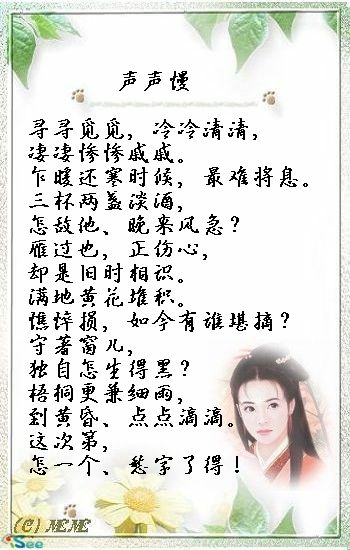 声声慢
寻寻觅觅，冷冷清清，
凄凄惨惨戚戚。
乍暖还寒时候，最难将息。
三杯两盏淡酒，
怎敌他、晚来风急？
雁过也，正伤心，
却是旧时相识。
满地黄花堆积。
憔悴损，如今有谁堪摘？
守著窗儿，
独自怎生得黑？
梧桐更兼细雨，
到黄昏、点点滴滴。
这次第，
怎一个、愁字了得！
(C) MEME
See